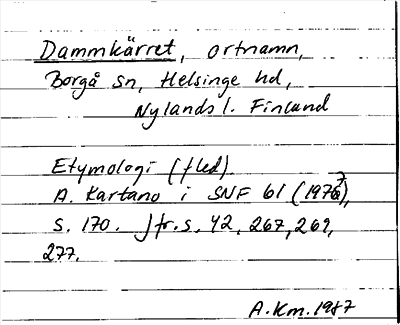 Dammkärret, ortnamn,
Borgå sn, Helsinge hd,
Nylands l. Finland
Etymologi (fled).
A. Kartano i SNF 61 (1977),
s. 170. Jfr. s. 42, 267, 269,
277.
A.Km. 1987